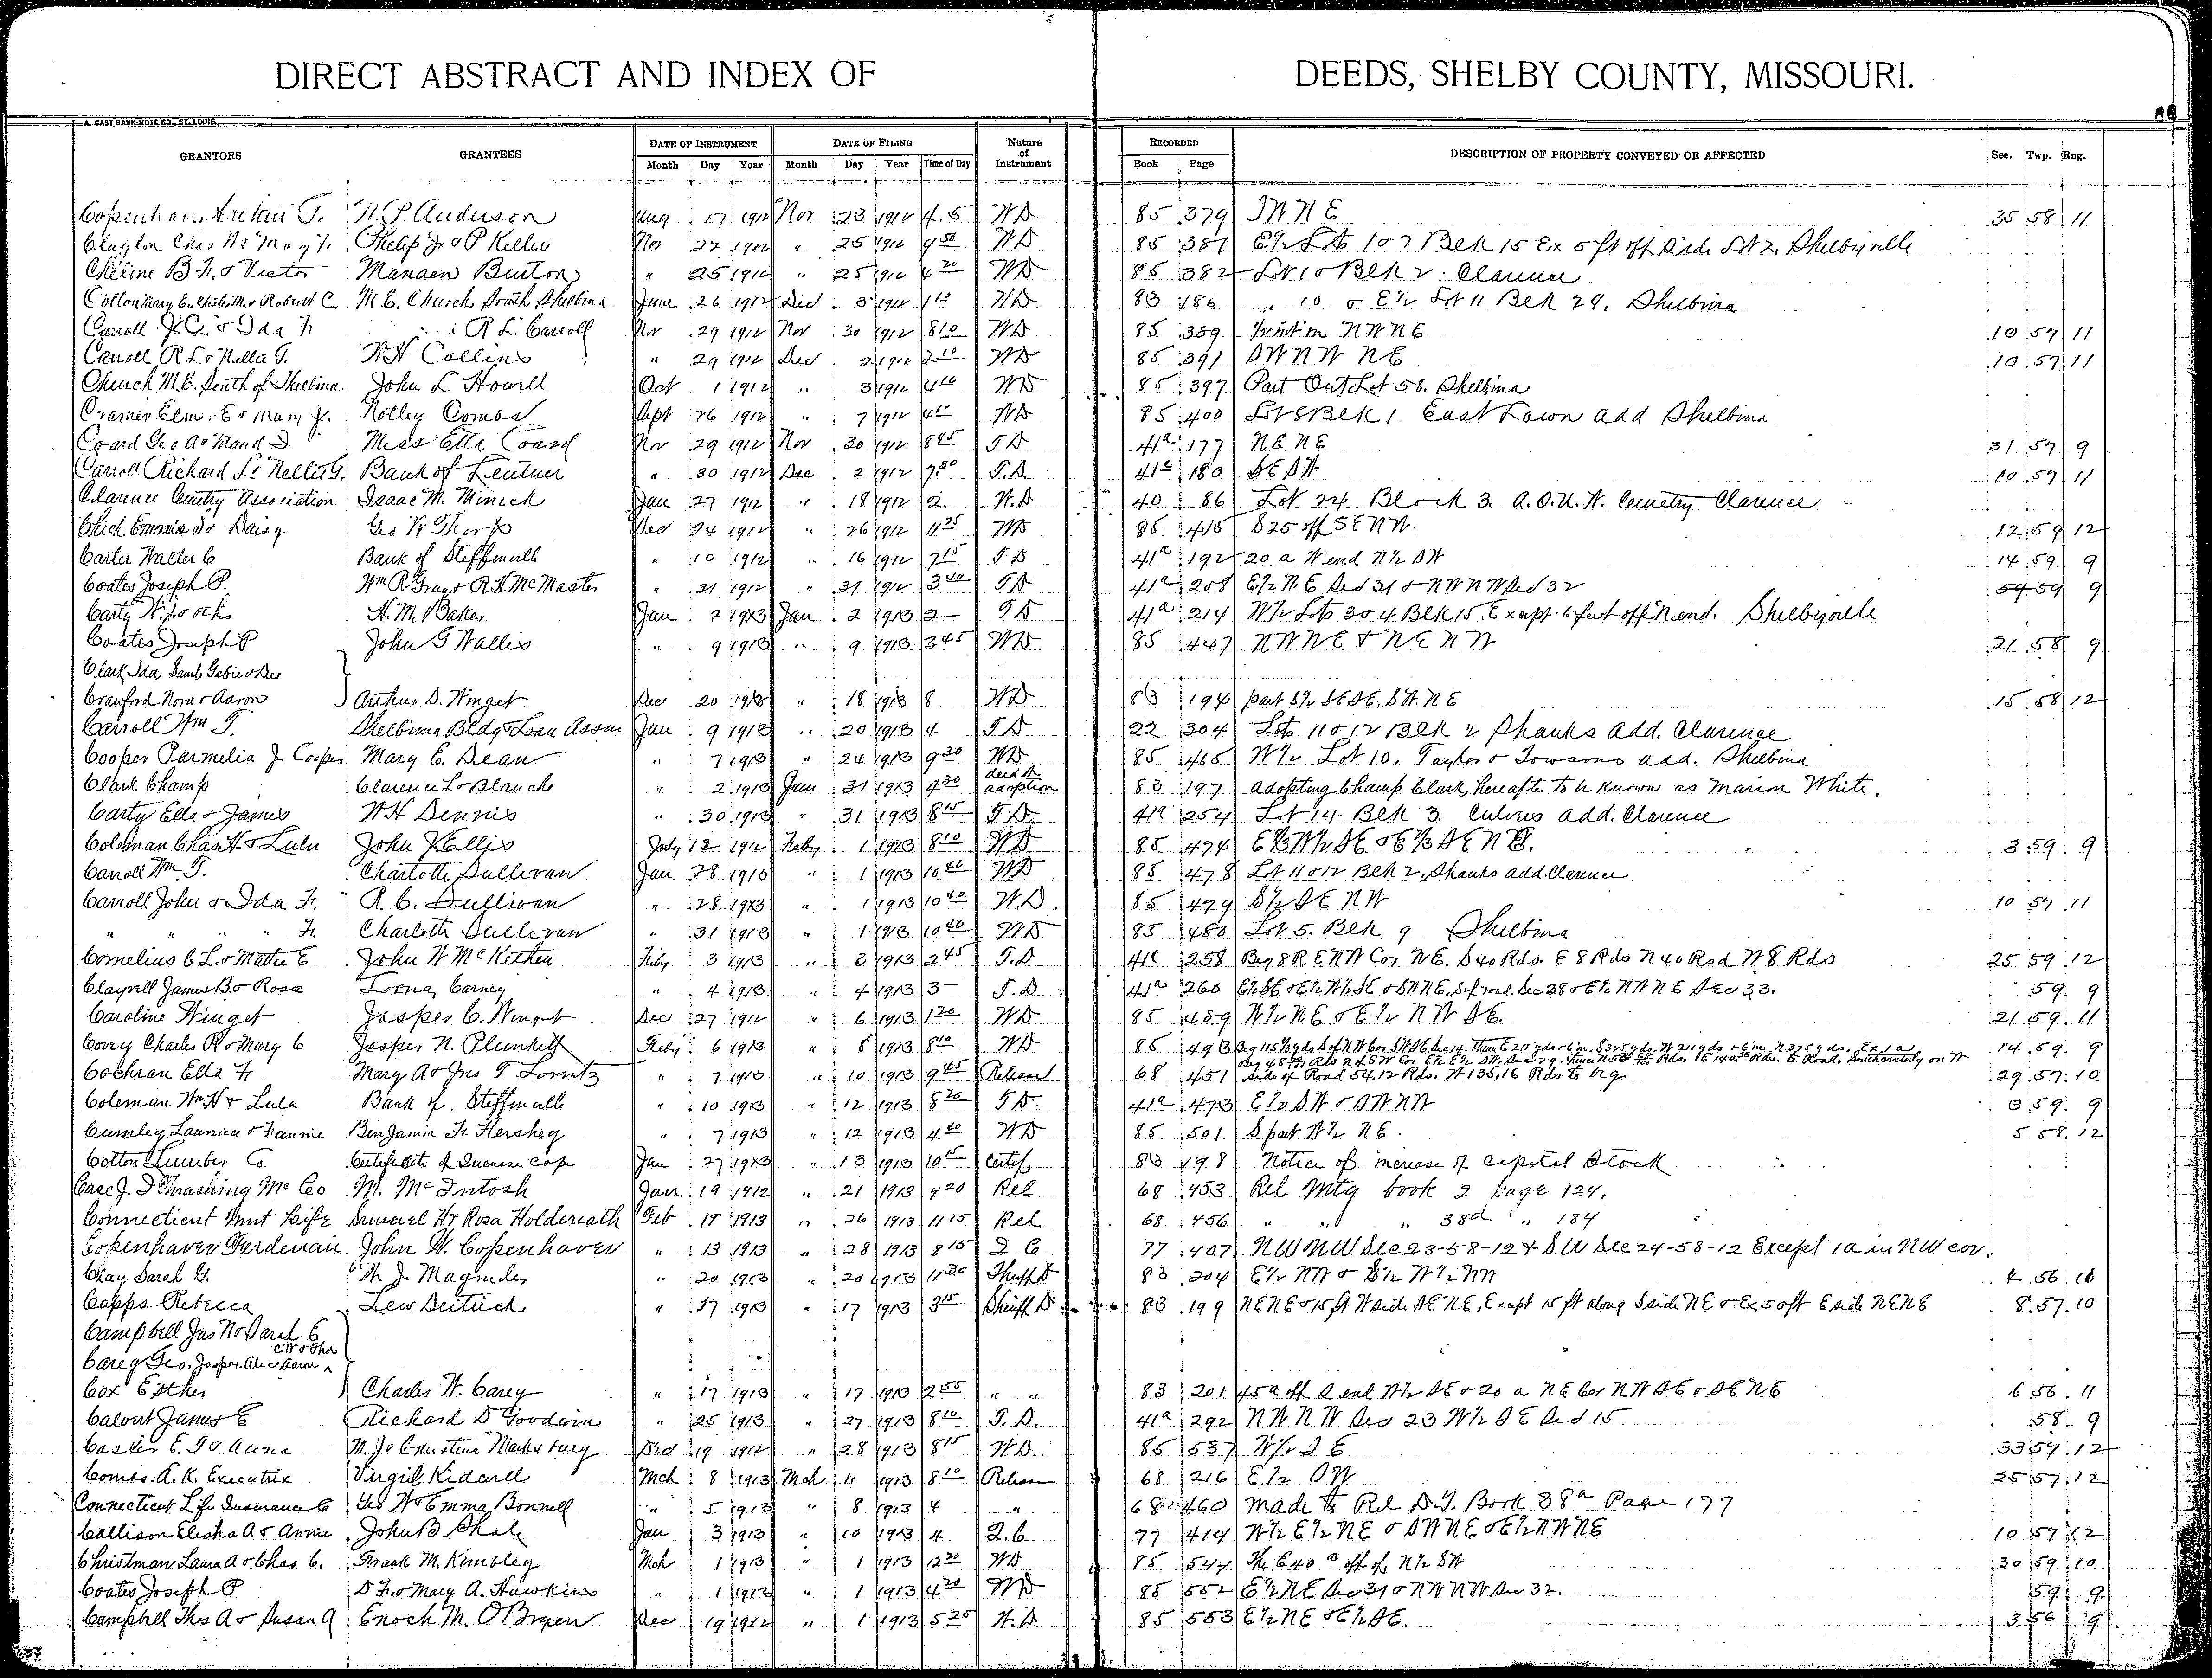 DIRECT ABSTRACT AND INDEX OF DEEDS, SHELBY COUNTY, MISSOURI.
A. GAST BANK-NOTE CO., ST. LOUIS.
GRANTORS GRANTEES DATE OF INSTRUMENT DATE OF FILING Nature of Instrument RECORDED DESCRIPTION OF PROPERTY CONVEYED OR AFFECTED Sec. Twp. Rng.
Month Day Year Month Day Year Time of Day Book Page
N. P. Anderson Aug 17 1912 Nov 23 1912 WD 85 379 35 58 11
Nov 22 1912 " 25 1912 9 50 WD 85 381 E½ Lots 1 & 2 Blk 15 Ex 5 ft off Side Lot 2. Shelbyville
Cheline B F. & Victor Manaen Burton " 25 1912 " 25 1912 4 20 WD 85 382 Lot 10 Blk 2. Clarence
M. E. Church South Shelbina June 26 1912 Dec 3 1912 WD 83 186 " 10 & E½ Lot 11 Blk 29. Shelbina
Carroll J. C. & Ida F. R. L. Carroll Nov 29 1912 Nov 30 1912 8 10 WD 85 389 ½ int in NWNE 10 57 11
Carroll R L & Nellie G. W H Collins " 29 1912 Dec 2 1912 2 10 WD 85 391 SWNW NE 10 57 11
Church M. E. South of Shelbina. John L. Howell Oct 1 1912 " 3 1912 WD 85 397 Part Out Lot 58. Shelbina
Notley Combs Sept 26 1912 " 7 1912 WD 85 400 Lot 8 Blk 1 East Town add Shelbina
Coard Geo A & Maud D. Miss Etta Coard Nov 29 1912 Nov 30 1912 8 45 T.D 41a 177 NENE 31 57 9
Carroll Richard L & Nellie G. Bank of Lentner " 30 1912 Dec 2 1912 7 30 T.D. 41a 180 SE SW 10 57 11
Clarence Cemetry Association Isaac M. Minick Jan 27 1912 " 18 1912 2 W.D 40 86 Lot 24 Block 3. A.O.U.W. Cemetry Clarence
Geo W Thorp Dec 24 1912 " 26 1912 11 25 WD 85 415 S25 off SENW. 12 59 12
Carter Walter C Bank of Steffinville " 10 1912 " 16 1912 7 15 T D 41a 192 20 a W end N½ SW 14 59 9
Coates Joseph P. Wm R Gray & R. H. McMaster " 31 1912 " 31 1912 3 40 T D 41a 208 E½ NE Sec 31 & NWNW Sec 32 59 9
H. M. Baker Jan 2 1913 Jan 2 1913 2 T D 41a 214 W½ Lots 3 & 4 Blk 15. Except 6 feet off N end. Shelbyville
Coates Joseph P John G Wallis " 9 1913 " 9 1913 3 45 WD 85 447 NWNE & NENW 21 58 9
Clark Ida
Crawford Nora & Aaron Arthur D. Winget Dec 20 " 18 1913 8 WD 83 194 part S½ SESE. SW. NE 15 58 12
Carroll Wm T. Shelbina Bldg & Loan Assn Jan 9 1913 " 20 1913 4 T D 22 304 Lots 11 & 12 Blk 2 Shanks add. Clarence
Cooper Parmelia J Cooper Mary E. Dean " 7 1913 " 24 1913 9 30 WD 85 465 W½ Lot 10. Taylor & Towsons add. Shelbina
Clark Champ Clarence L & Blanche " 2 1913 Jan 31 1913 4 30 deed of adoption 83 197 adopting Champ Clark, hereafter to be known as Marion White.
Carty Ella & James W H Dennis " 30 1913 " 31 1913 8 15 T D 41a 254 Lot 14 Blk 3. Culvers add. Clarence
Coleman Chas H & Lulu John J Ellis July 12 1912 Feby 1 1913 8 10 WD 85 474 3 59 9
Carroll Wm T. Charlotte Sullivan Jan 28 1913 " 1 1913 10 40 WD 85 478 Lot 11 & 12 Blk 2, Shanks add. Clarence
Carroll John & Ida F. R. C. Sullivan " 28 1913 " 1 1913 10 40 W.D. 85 479 S½ SE NW 10 57 11
" " " " F. Charlotte Sullivan " 31 1913 " 1 1913 10 40 WD 85 480 Lot 5. Blk 9 Shelbina
Cornelius C L. & Mattie E John W McKethen Feby 3 1913 " 3 1913 2 45 T.D 41a 258 Beg 8 R E NW Cor NE. S 40 Rds. E 8 Rds N 40 Rod W 8 Rds 25 59 12
Clayvell James B. & Rosa Lorna Carney " 4 1913 " 4 1913 3 T.D. 41a 260 59. 9
Caroline Winget Jasper C. Winget Dec 27 1912 " 6 1913 1 20 WD 85 489 W½ NE & E½ NW SE. 21 59 11
Covey Charles R & Mary C Jasper N. Plunkett Feby 6 1913 " 8 1913 8 10 WD 85 493 14 59 9
Cochran Ella F Mary A & Jno T Lorentz " 7 1913 " 10 1913 9 45 Release 68 451 side of Road 54.12 Rds. W 135.16 Rds to beg 29 57 10
Coleman Wm H & Lula Bank of Steffinville " 10 1913 " 12 1913 8 20 T D 41a 473 E½ SW & SWNW 3 59 9
Benjamin F. Hershey " 7 1913 " 12 1913 4 40 WD 85 501 S part W½ NE. 5 58 12
Cotton Lumber Co Certificate of Increase Cap Jan 27 1913 " 13 1913 10 15 Certif 83 198 Notice of increase of capital Stock.
Case J. I Thrashing Mc Co M. McIntosh Jan 19 1912 " 21 1913 4 20 Rel 68 453 Rel Mtg book 2 page 124.
Connecticut Mut Life Samuel H & Rosa Holdereath Feb 19 1913 " 26 1913 11 15 Rel 68 456 " " " 38d " 184
Copenhaver Ferdenain John W. Copenhaver " 13 1913 " 28 1913 8 15 Q C 77 407 NWNW Sec 23-58-12 & SW Sec 24-58-12 Except 1a in NW cor.
Clay Sarah G. W. J. Magruder " 20 1913 " 20 1913 11 30 83 204 E½ NW & S½ W½ NW 4 56 10
Capps Rebecca Lew Deitrick " 17 1913 " 17 1913 3 15 Sheriff D 83 199 NENE & 15 ft W side SENE, Except 15 ft along S side NE & Ex 5 oft E side NENE 8 57 10
Campbell Jas N & Sarah E
Carey Geo. Jasper. Alec Aaron
Cox Esther Charles W. Carey " 17 1913 " 17 1913 2 55 " " 83 201 45a off S end W½ SE & 20 a NE Cor NW SE & SE NE 6 56 11
Calvert James E Richard D Goodwin " 25 1913 " 27 1913 8 10 T.D. 41a 292 NWNW Sec 23 W½ SE Sec 15 58 9
Dec 19 1912 " 28 1913 8 15 W.D. 85 537 W½ SE 33 57 12
Combs A. K. Executrix Virgil Kidwell Mch 8 1913 Mch 11 1913 8 10 Release 68 216 E½ SW 25 57 12
Connecticut Life Insurance C Geo W & Emma Bonnell " 5 1913 " 8 1913 4 " 68 460 made to Rel D.T. Book 38a Page 177
Callison Elisha A & Annie John B Shale Jan 3 1913 " 10 1913 4 Q.C. 77 414 W½ E½ NE & SWNE & E½ NWNE 10 57 12
Christman Laura A & Chas C. Frank M. Kimbley Mch 1 1913 " 1 1913 12 20 WD 85 544 The E 40 a off of N½ SW 30 59 10
Coates Joseph P D F. & Mary A. Hawkins " 1 1913 " 1 1913 4 20 WD 85 552 E½ NE Sec 31 & NWNW Sec 32. 59 9
Campbell Thos A & Susan A Enoch M. O Bryen Dec 19 1912 " 1 1913 5 20 W.D 85 553 E½ NE & E½ SE. 3 56 9